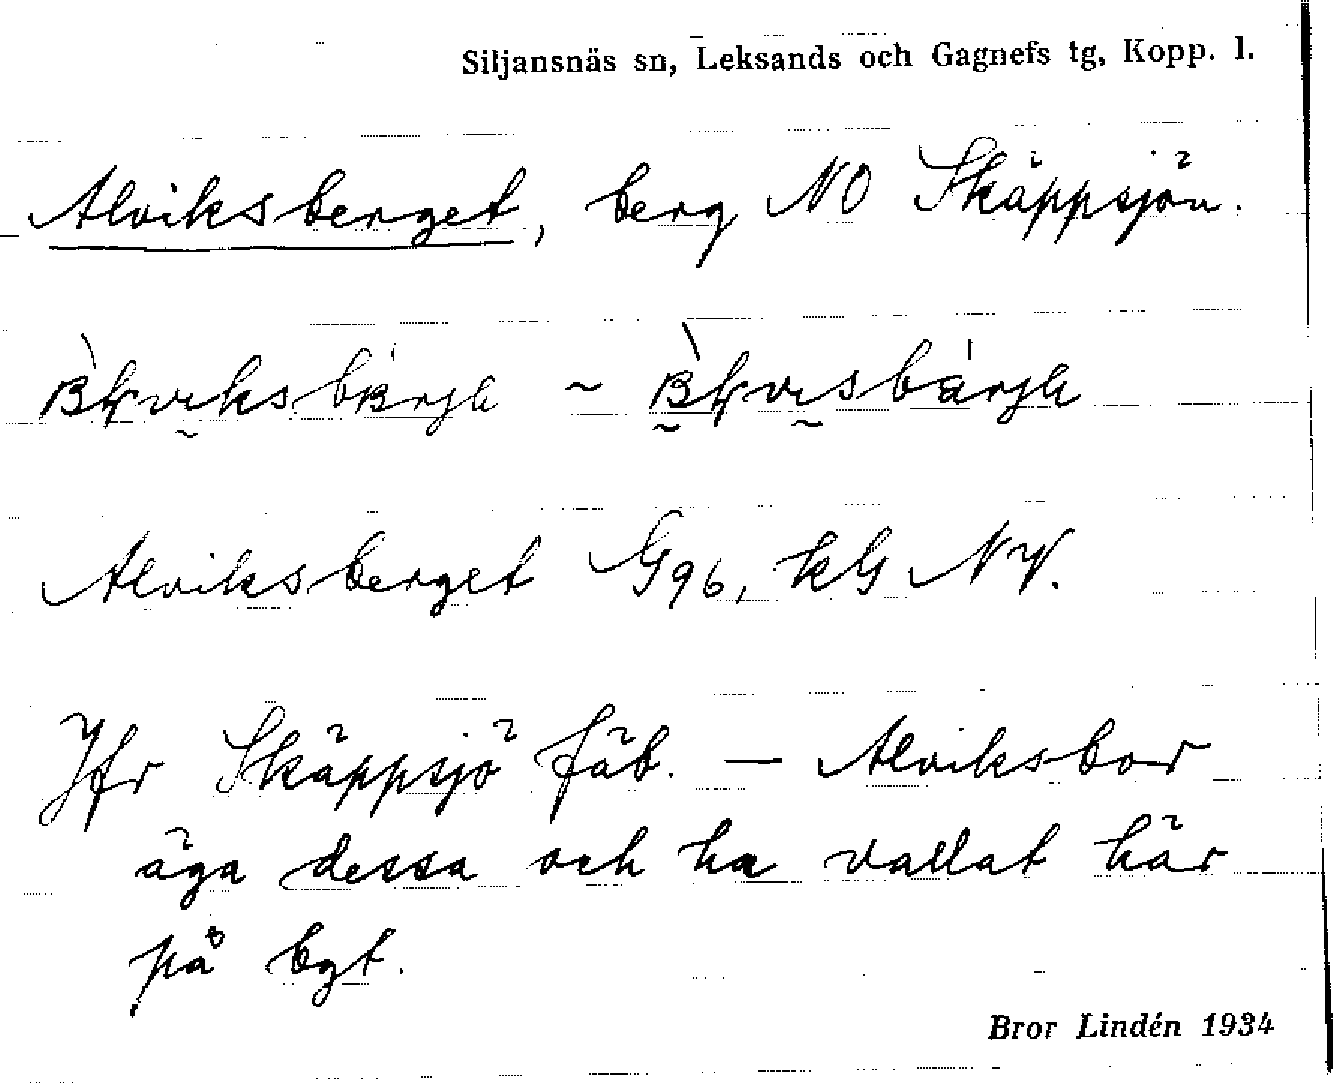 Siljansnäs sn, Leksands och Gagnefs tg, Kopp. l.
Alviksberget, berg NO Skäppsjön.
~
Alviksberget G96, kG NV.
Jfr Skäppsjö fäb. — Alviksbor
äga dessa och ha vallat här
på bgt.
Bror Lindén 1934